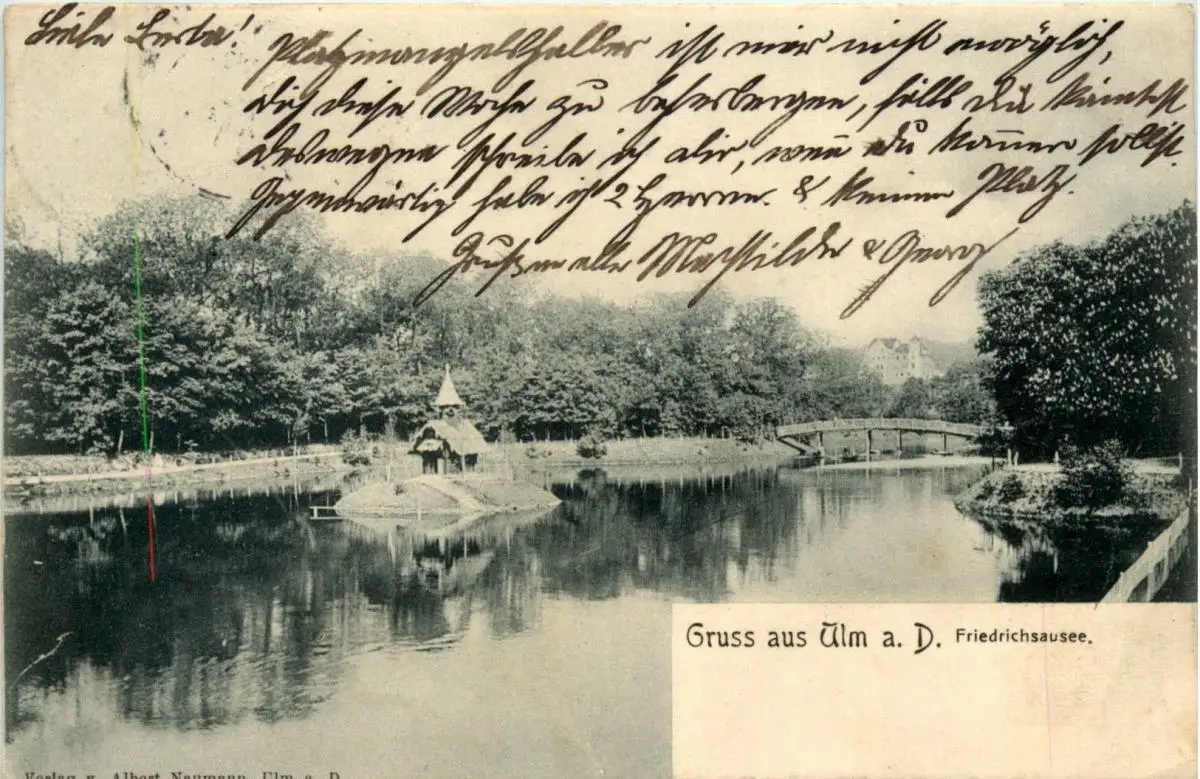 Liebe Berta!
Platzmangelshalber ist mir nicht möglich,
dich diese Woche zu beherbergen, falls du kämtest
deswegen schreibe ich dir, wen̄ du kom̄en sollst.
Gegenwärtig habe ich 2 Herren. & keinen Platz.
Grüße an alle Mathilde & Georg
Gruss aus Ulm a. D. Friedrichsausee.
Verlag v. Albert Naumann, Ulm a. D.